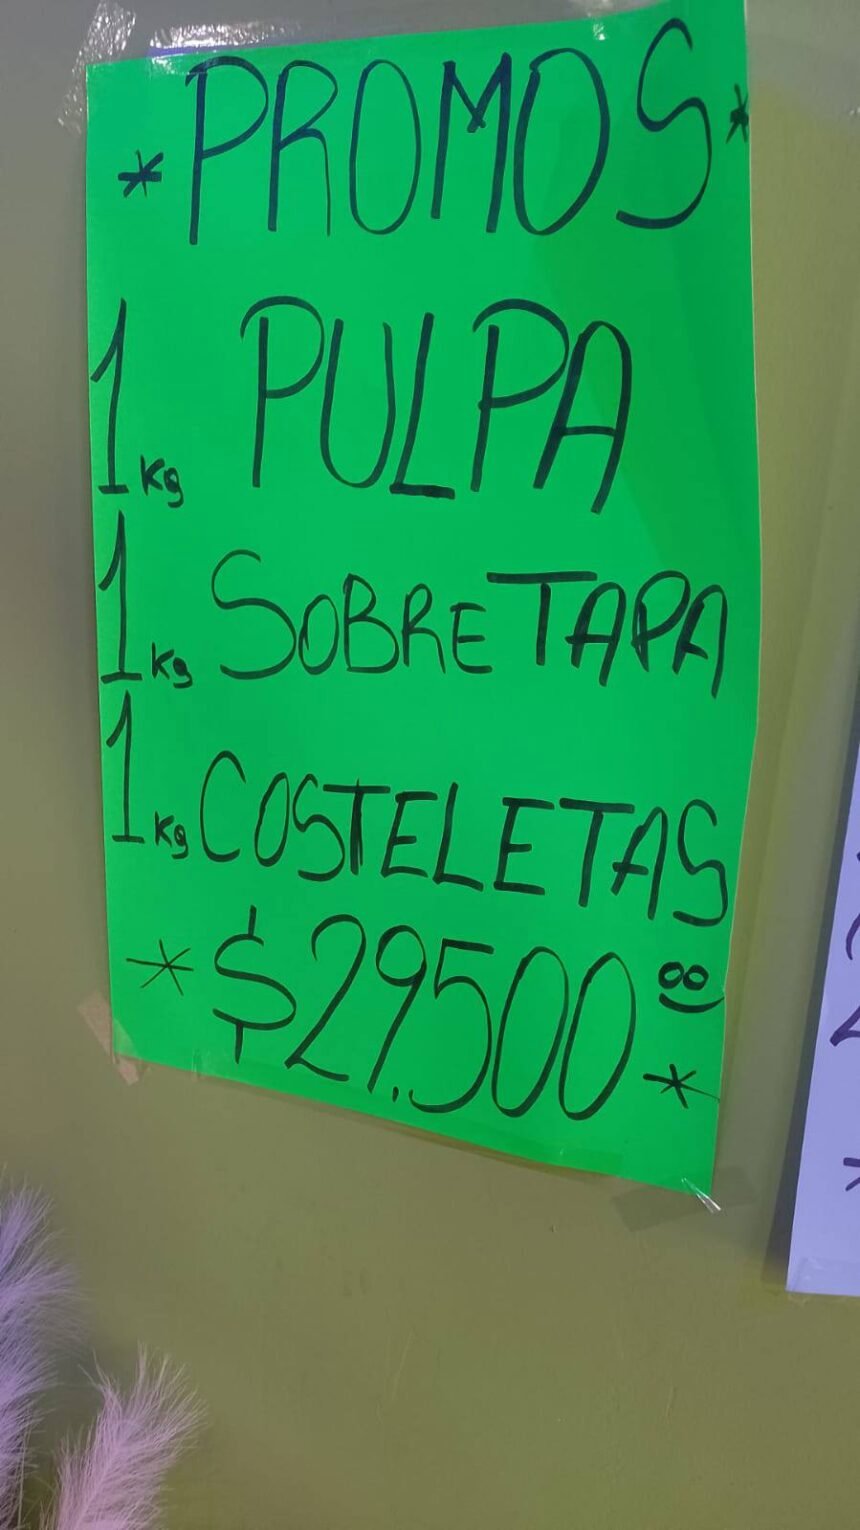 *PROMOS*
1kg PULPA
1kg SOBRETAPA
1kg COSTELETAS
*$29.500*